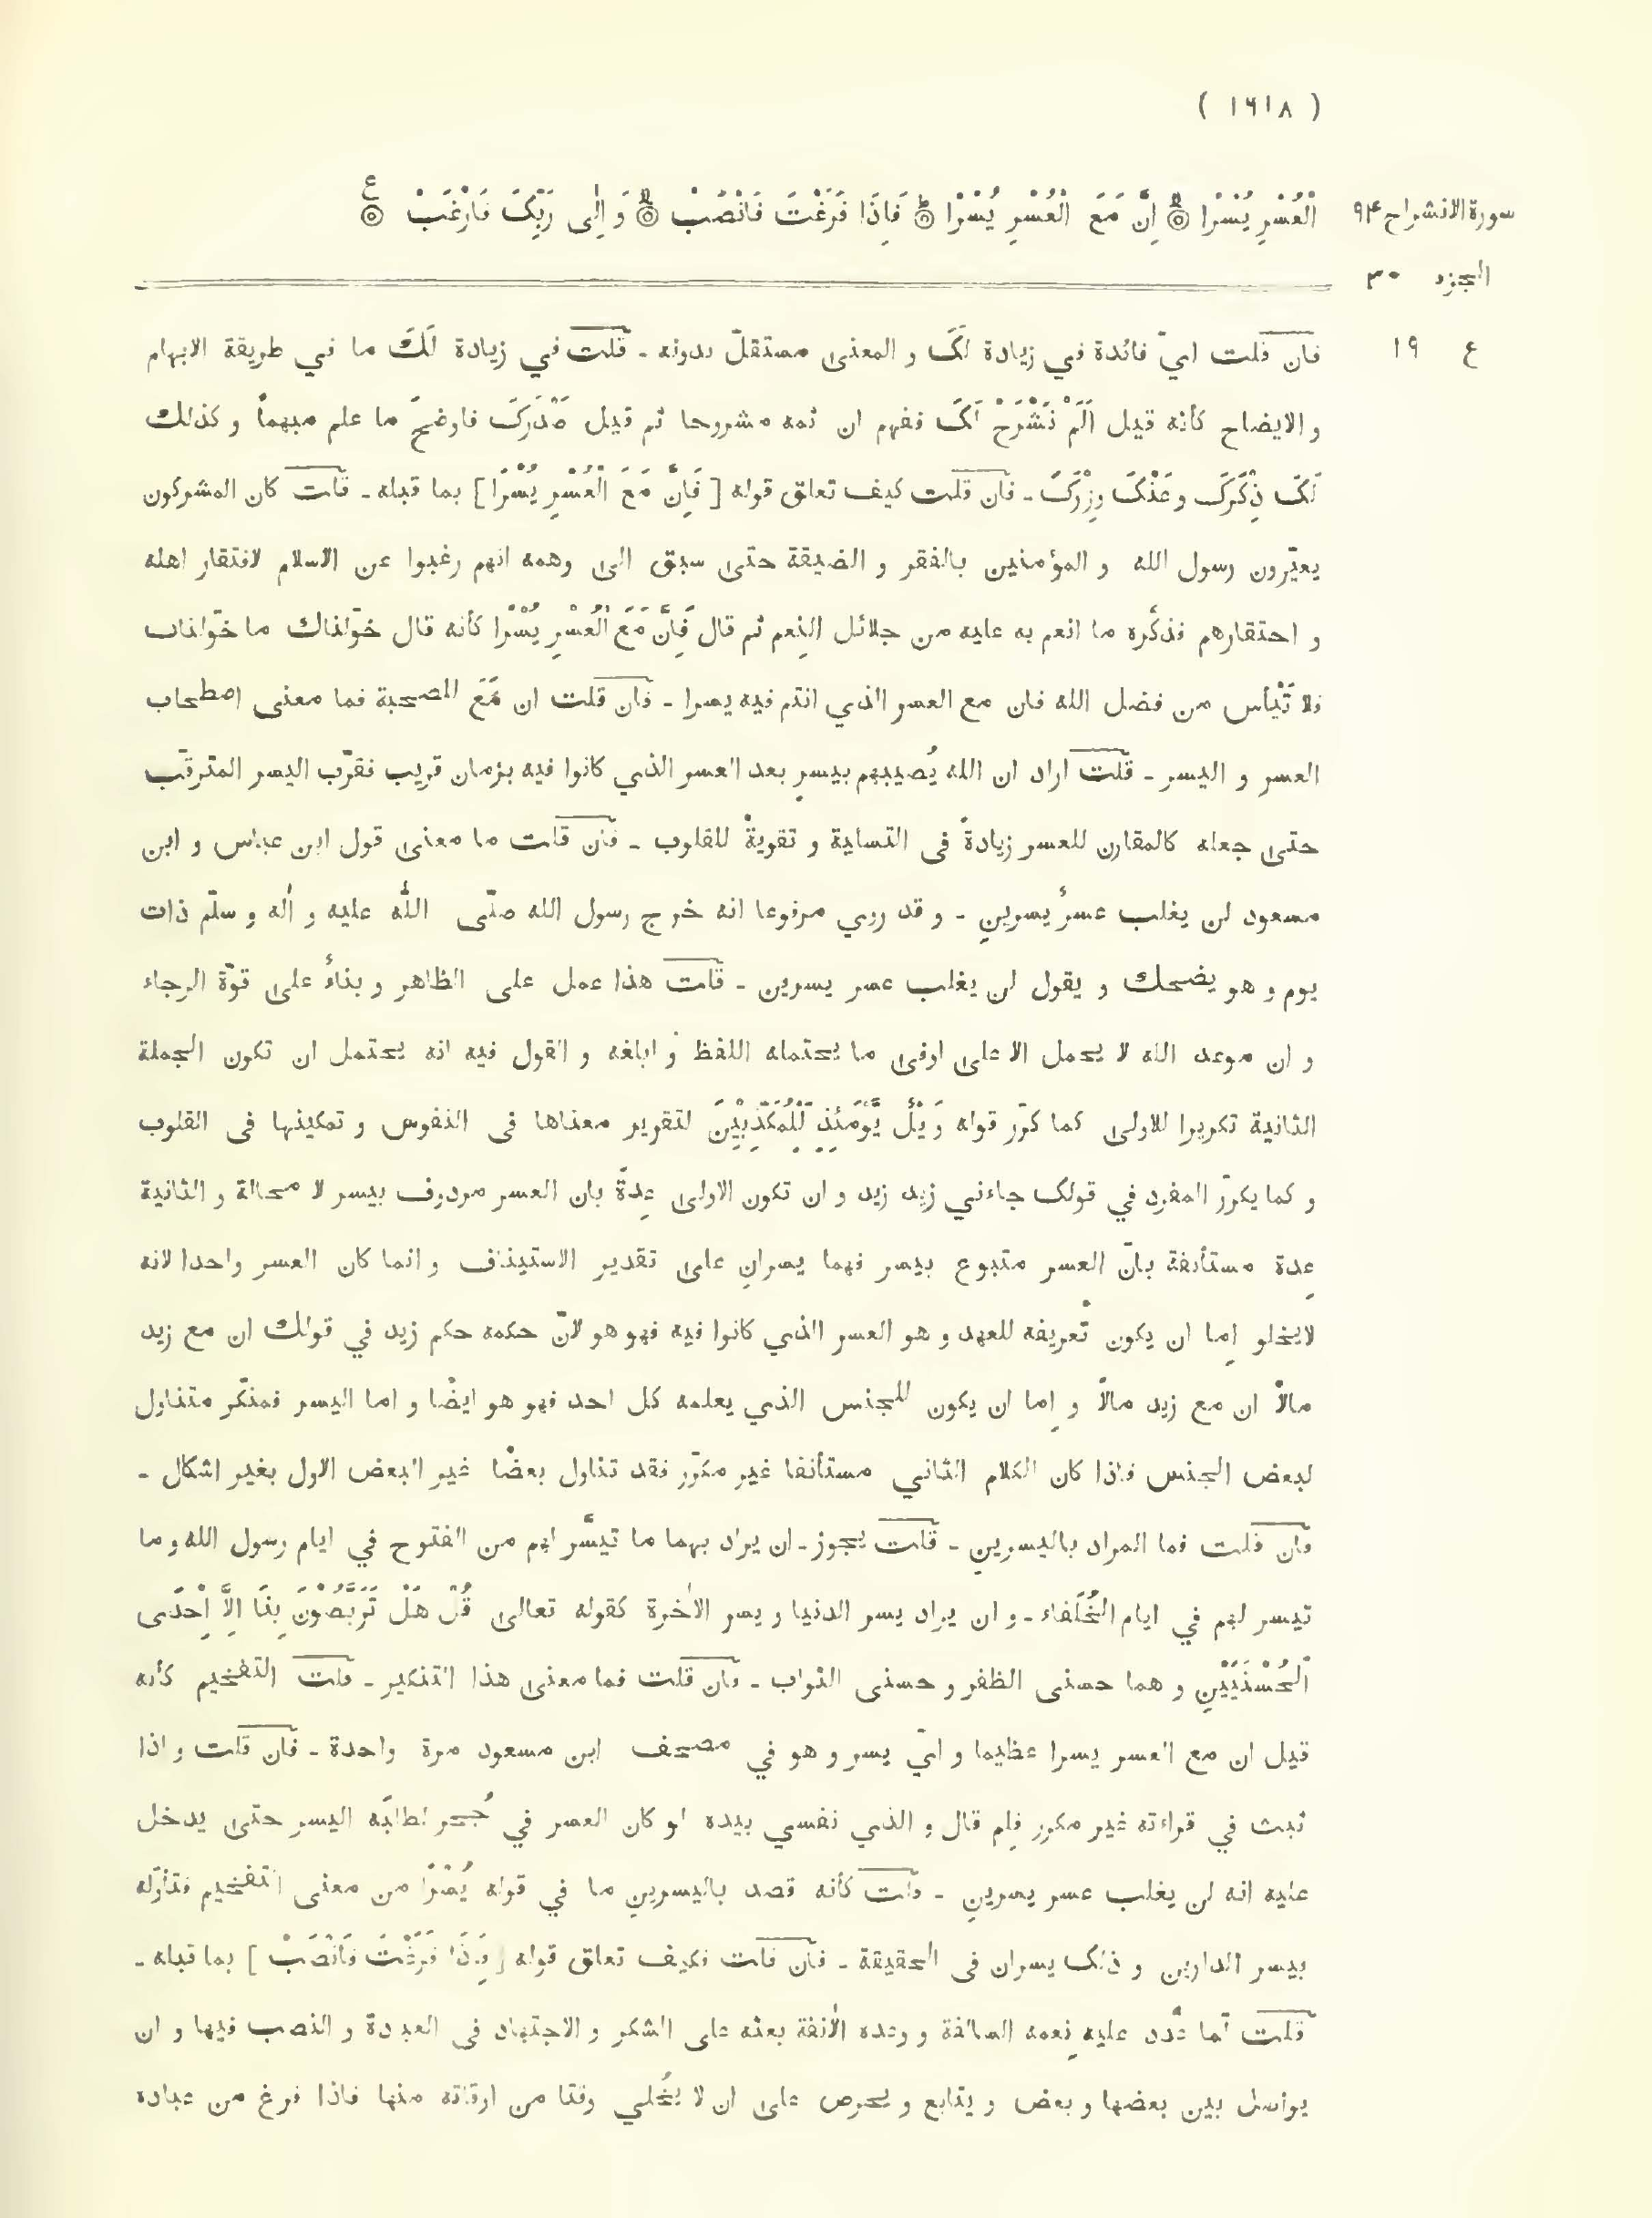 ( ١٦١٨ )
سورة الانشراح ٩٤
الْعُسْرِ يُسْرًا ۞ اِنَّ مَعَ الْعُسْرِ يُسْرًا ۞ فَاِذَا فَرَغْتَ فَانْصَبْ ۞ وَ اِلٰى رَبِّكَ فَارْغَبْ ۞ ع
الجزء ٣٠
ع ١٩
فان قلت ايّ فائدة في زيادة لَكَ و المعنى مستقلّ بدونه ـ قلت في زيادة لَكَ ما في طريقة الابهام
و الايضاح كأنه قيل اَلَمْ نَشْرَحْ لَكَ ففهم ان ثمه مشروحا ثم قيل صَدْرَكَ فاوضح ما علم مبهماً و كذلك
لَكَ ذِكْرَكَ و عَنْكَ وِزْرَكَ ـ فان قلت كيف تعلق قوله [ فَاِنَّ مَعَ الْعُسْرِ يُسْرًا ] بما قبله ـ قلت كان المشركون
يعيّرون رسول الله و المؤمنين بالفقر و الضيقة حتى سبق الى وهمه انهم رغبوا عن الاسلام لافتقار اهله
و احتقارهم فذكّره ما انعم به عليه من جلائل النِعم ثم قال فَاِنَّ مَعَ الْعُسْرِ يُسْرًا كأنه قال خوّلناك ما خوّلناك
فلا تَيْأس من فضل الله فان مع العسر الذي انتم فيه يسرا ـ فان قلت ان مَعَ للصحبة فما معنى اصطحاب
العسر و اليسر ـ قلت اراد ان الله يُصيبهم بيسرٍ بعد العسر الذي كانوا فيه بزمان قريب فقرّب اليسر المترقَّب
حتى جعله كالمقارن للعسر زيادةً فى التسلية و تقويةً للقلوب ـ فان قلت ما معنى قول ابن عباس و ابن
مسعود لن يغلب عسرٌ يسرينِ ـ و قد روي مرفوعا انه خرج رسول الله صلّى اللّٰه عليه و اٰله و سلّم ذات
يوم و هو يضحك و يقول لن يغلب عسر يسرين ـ قلت هذا عمل على الظاهر و بناءً على قوّة الرجاء
و ان موعد الله لا يحمل الا على اوفى ما يحتمله اللفظ و ابلغه و القول فيه انه يحتمل ان تكون الجملة
الثانية تكريرا للاولى كما كرّر قوله وَيْلٌ يَّوْمَئِذٍ لِّلْمُكَذِّبِيْنَ لتقرير معناها فى النفوس و تمكينها فى القلوب
و كما يكرّر المفرد في قولك جاءني زيد زيد و ان تكون الاولى عِدةً بان العسر مردوف بيسر لا محالة و الثانية
عِدة مستأنفة بانّ العسر متبوع بيسر فهما يسرانِ على تقدير الاستيناف و انما كان العسر واحدا لانه
لايخلو اِما ان يكون تعريفه للعهد و هو العسر الذي كانوا فيه فهو هو لانّ حكمه حكم زيد في قولك ان مع زيد
مالاً ان مع زيد مالاً و اِما ان يكون للجنس الذي يعلمه كل احد فهو هو ايضًا و اما اليسر فمنكّر متناول
لبعض الجنس فاذا كان الكلام الثاني مستأنفا غير مكرّر فقد تناول بعضًا غير البعض الاول بغير اشكال ـ
فان قلت فما المراد باليسرينِ ـ قلت يجوز ـ ان يراد بهما ما تيسّر لهم من الفتوح في ايام رسول الله و ما
تيسر لهم في ايام الخُلَفاء ـ و ان يراد يسر الدنيا و يسر الاٰخرة كقوله تعالى قُلْ هَلْ تَرَبَّصُوْنَ بِنَا اِلَّا اِحْدَى
الْحُسْنَيَيْنِ و هما حسنى الظفر و حسنى الثواب ـ فان قلت فما معنى هذا التنكير ـ قلت التفخيم كأنه
قيل ان مع العسر يسرا عظيما و ايّ يسر و هو في مصحف ابن مسعود مرة واحدة ـ فان قلت و اذا
ثبت في قراءته غير مكرر فلِم قال و الذي نفسي بيده لو كان العسر في جُحر لطلبَه اليسر حتى يدخل
عليه انه لن يغلب عسر يسرينِ ـ قلت كأنه قصد باليسرينِ ما في قوله يُسْرًا من معنى التفخيم فتأوّله
بيسر الدارين و ذلك يسران فى الحقيقة ـ فان قلت فكيف تعلق قوله [ فَاِذَا فَرَغْتَ فَانْصَبْ ] بما قبله ـ
قلت لمّا عدّد عليه نِعمه السالفة و وعده الاٰنفة بعثه على الشكر و الاجتهاد فى العبادة و النصب فيها و ان
يواصل بين بعضها و بعض و يتابع و يحرص على ان لا يُخلي وقتا من اوقاته منها فاذا فرغ من عبادة